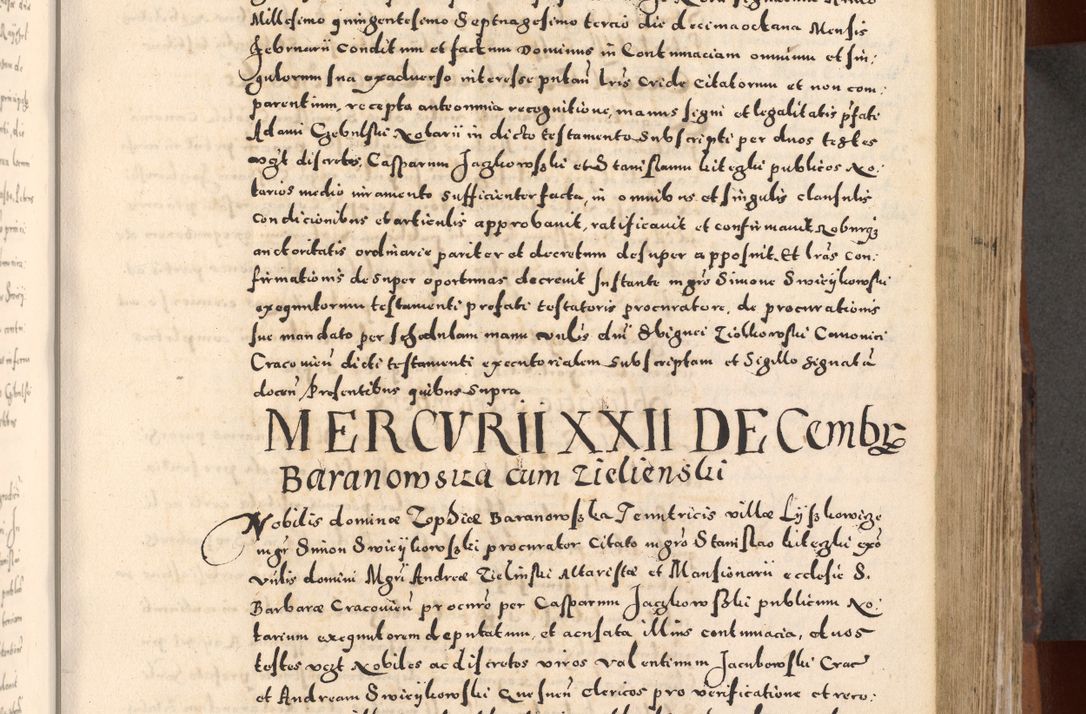 Millesimo quingentesimo Septuagesimo tercio die decimaoctaua Mensis
Februarii conditum et factum Dominus in Contumaciam omnium et sin-
gulorum sua exaduerso interesse putan̄ lr̄is Cride citatorum et non com-
parentium, recepta anteomnia recognitione, manus signi et legalitatis pr̄fati
Adami Czebulski Notarii in dicto testamento subscripti per duos testes
vczt discretos, Casparum Jaczkowsski et Stanislaum kiteczki publicos No-
tarios medio iuramento sufficienter facta, in omnibus et singulis clausulis
condicionibus et articulis approbauit, ratificauit et confirmauit, Roburqz
auctoritatis ordinarie pariter et decretum desuper apposuit. Et lr̄as con-
firmationis desuper oportunas decreuit Instante mgrō Simone Swieijkowski
exequutorum testamenti prefati testatoris procuratore, de procurationis
sue mandato per schedulam manu Vn̄lis dn̄i Zviguei Ziolkowski Canonici
Cracouien̄ dicti testamenti executorialem subscriptam et Sigillo signatā
docen̄ Presentibus quibus supra
MERCVRII XXII DECembr
Baranowska cum Zielienski
Nobilis dominæ Zophiæ Baranowsska Tenutricis villæ Lysskowicze
mgr̄ Simon Swieijkowsski procurator citato mgrō Stanislao kiteczki exō
Vn̄lis domini Mgr̄i Andreæ Zielinski Altaristæ et Mansionarii ecclesie S.
Barbaræ Cracouien̄ procurō per Casparum Jaczkowsski publicum No-
tarium exequutorem deputatum, et acusata illius contumacia, duos
testes vczt Nobiles ac discretos viros Valentinum Jacubowski Crac̄
et Andream Swieijkowski Quesnen̄ clericos pro verificatione et reco-